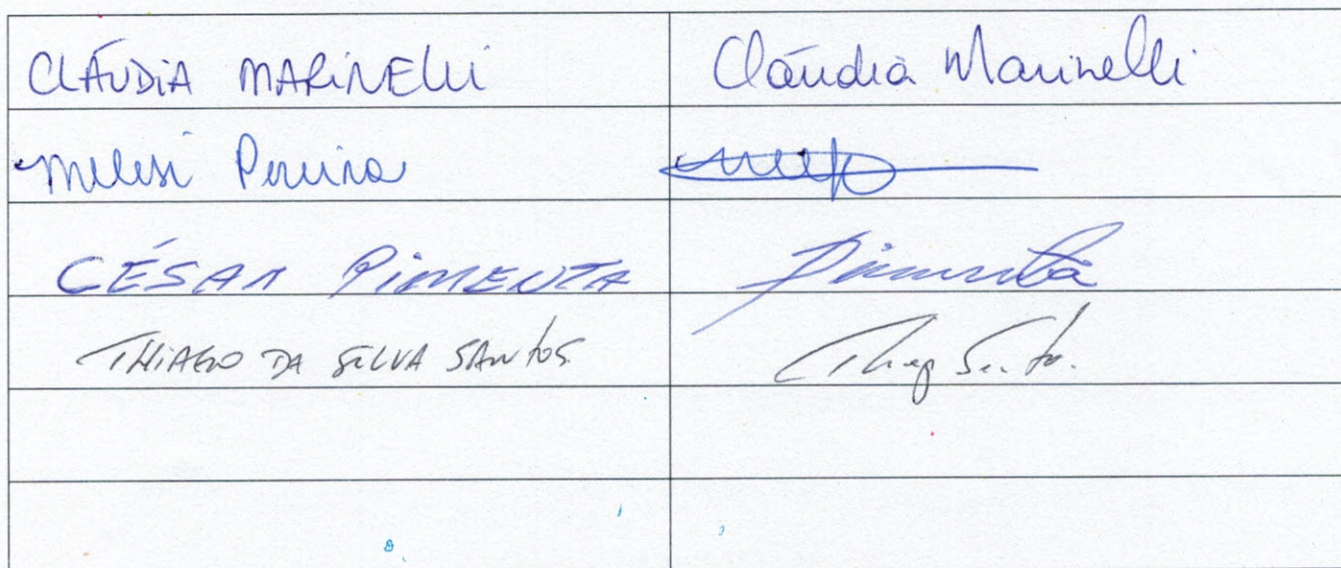 CLÁUDIA MARINELLI Cláudia Marinelli
Pereira
CÉSAR PIMENTA Pimenta
THIAGO DA SILVA SANTOS Thiag Santos.